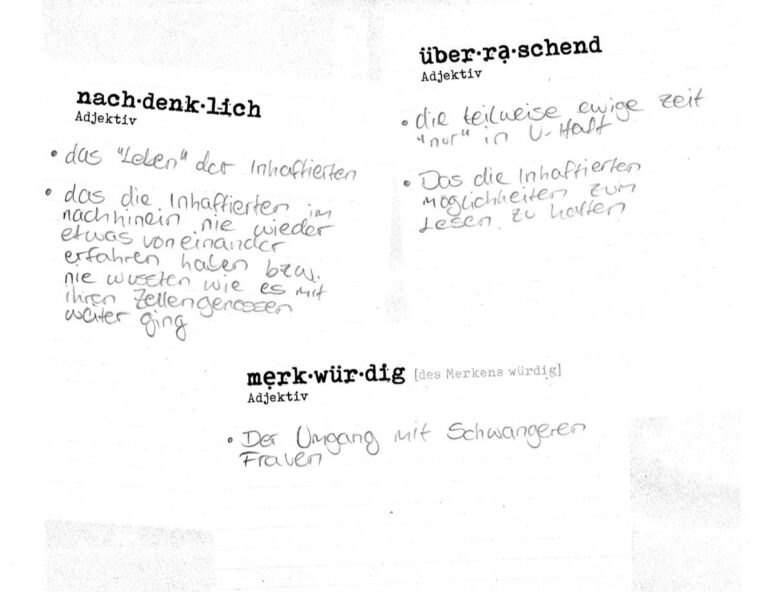 nach·denk·lich
Adjektiv
• das "Leben" der Inhaftierten
• das die Inhaftierten im
nachhinein nie wieder
etwas voneinander
erfahren haben bzw.
nie wussten wie es mit
ihren Zellengenossen
weiter ging
über·rạ·schend
Adjektiv
• die teilweise ewige Zeit
"nur" in U-Haft
• Das die Inhaftierten
möglichheiten zum
Lesen zu hatten
mẹrk·wür·dig [des Merkens würdig]
Adjektiv
• Der Umgang mit Schwangeren
Frauen